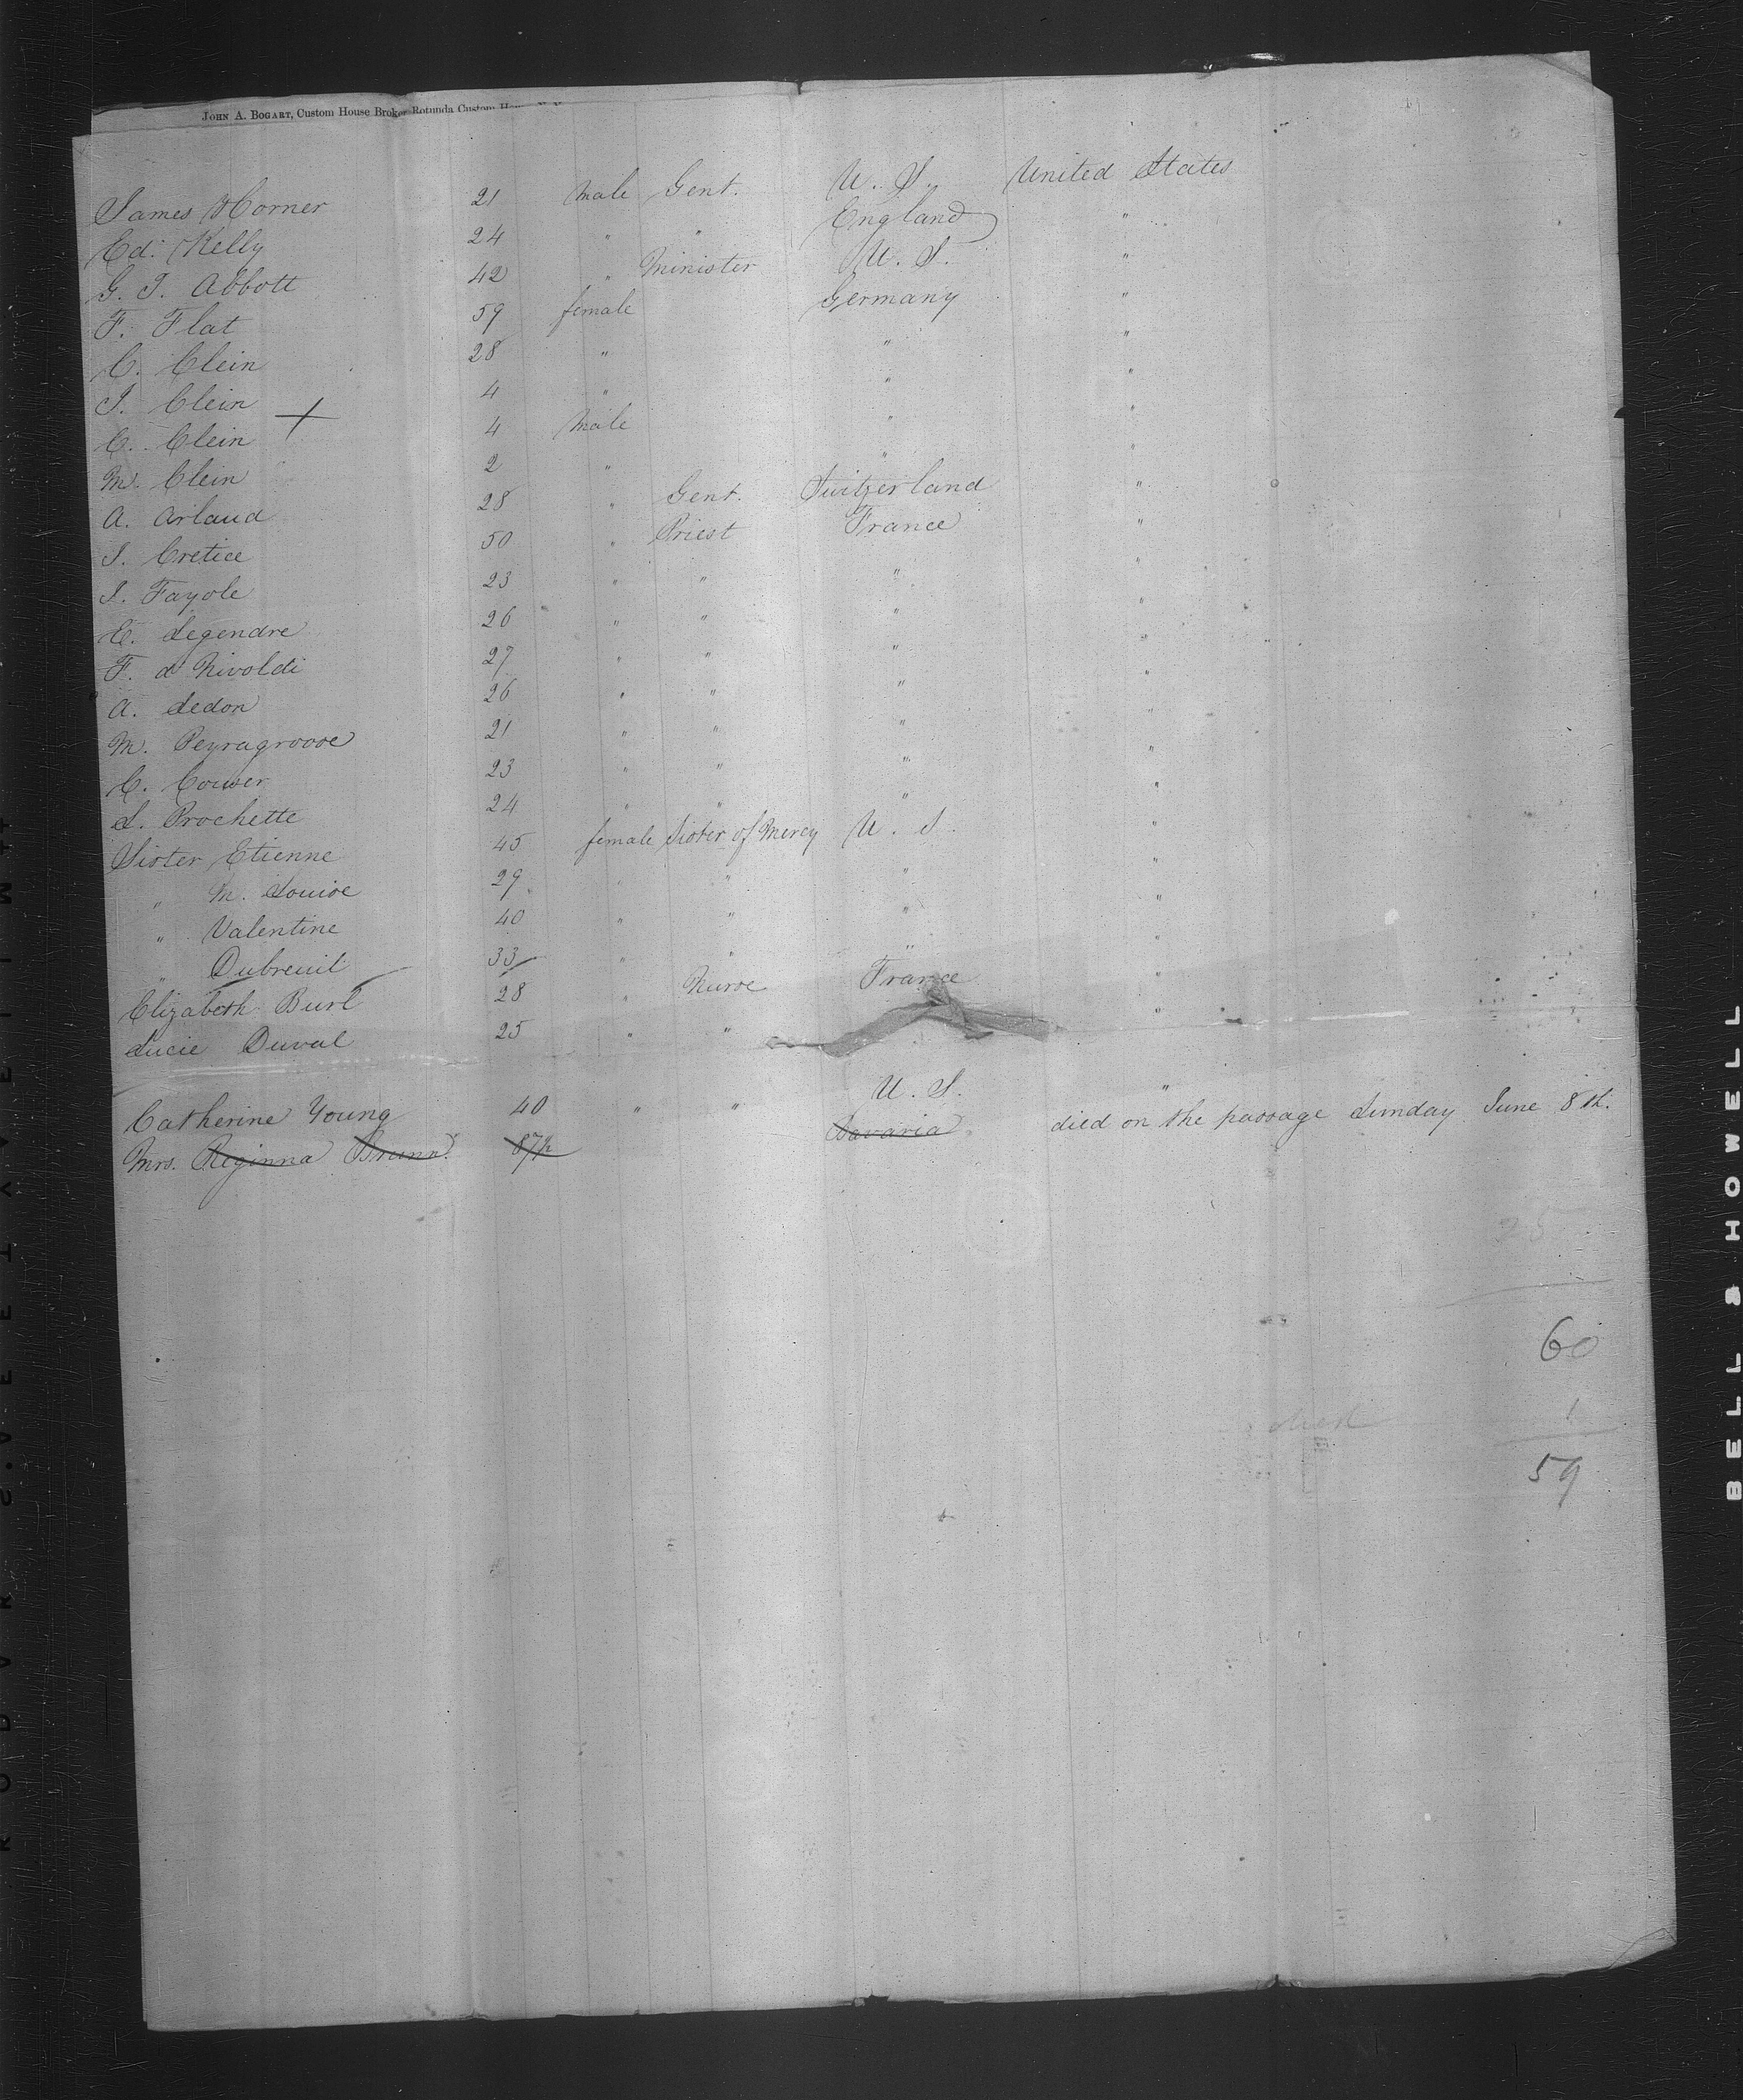 JOHN A. BOGART, Custom House Broker Rotunda Custom
James Horner 21 Male Gent. U. S. United States
Ed: Kelly 24 " " England "
G. J. Abbott 42 " Minister U. S. "
F. Flat 59 female Germany "
C. Clein 28 " " "
J. Clein 4 " " "
C. Clein 4 Male " "
M. Clein 2 " " "
A. Arlaud 28 " Gent. Switzerland "
J. Cretice 50 " Priest France "
J. Fayole 23 " " " "
E. Legendre 26 " " " "
F. d Nivoldi 27 " " " "
A. Ledon 26 " " " "
M. Peyragrosse 21 " " " "
C. Couser 23 " " " "
L. Prochette 24 " " " "
Sister Etienne 45 female Sister of Mercy U. S. "
" M. Louise 29 " " " "
" Valentine 40 " " " "
" Dubreuil 33 " " " "
Elizabeth Burl 28 " Nurse France "
Lucie Duval 25 " " "
Catherine Young 40 " " U. S. "
Mrs. Reginna Brunn. Bavaria died on the passage Sunday June 8th.
25
60
died 1
59
BELL & HOWELL